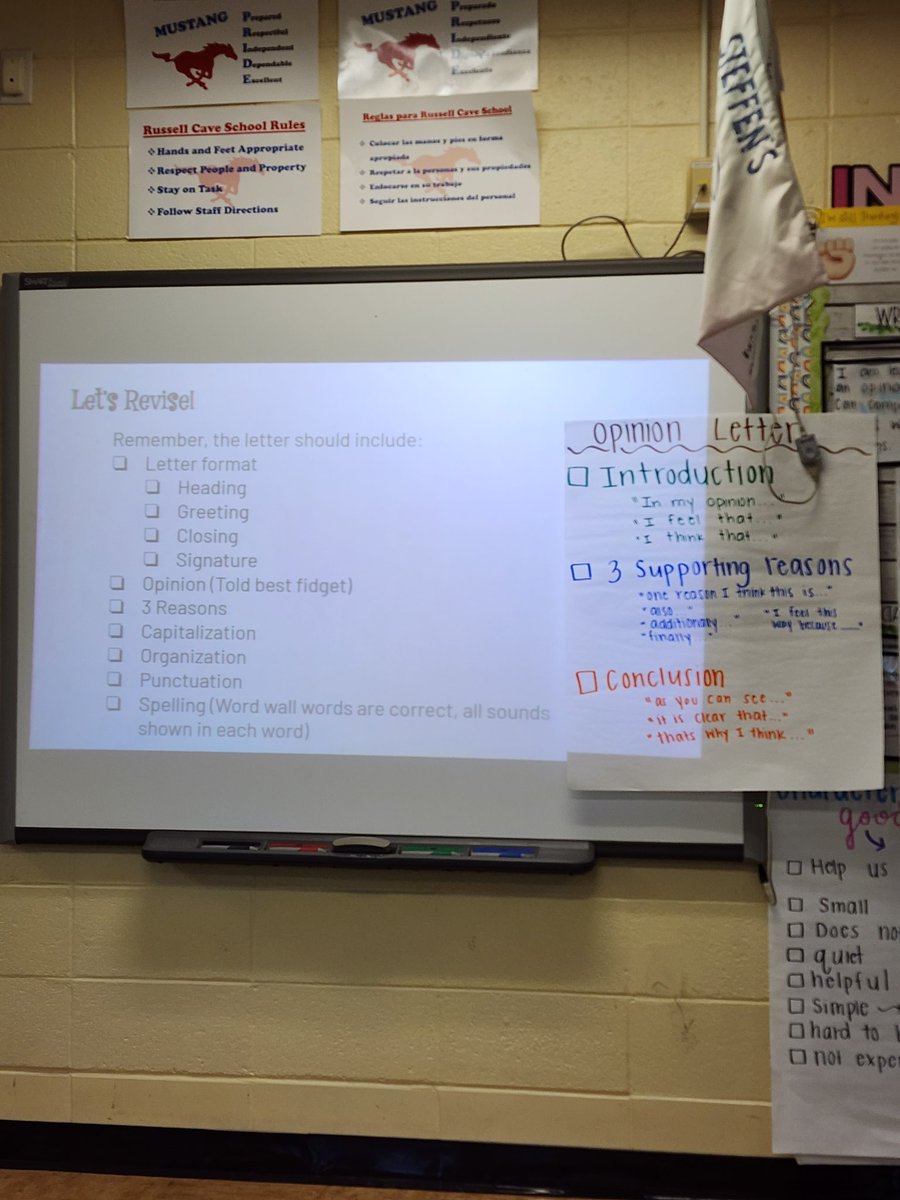 MUSTANG
Prepared
Respectful
Independent
Dependable
Excellent
MUSTANG
Preparado
Respetuoso
Independiente
Excelente
Russell Cave School Rules
❖ Hands and Feet Appropriate
❖ Respect People and Property
❖ Stay on Task
❖ Follow Staff Directions
Reglas para Russell Cave School
❖ Colocar las manos y pies en forma
apropiada
❖ Respetar a la personas y sus propiedades
❖ Enfocarse en su trabajo
❖ Seguir las instrucciones del personal
STEFFEN'S
IN
I'm still standing
WR
I am
an opinion
can
SMART
Let's Revise!
Remember, the letter should include:
❏ Letter format
❏ Heading
❏ Greeting
❏ Closing
❏ Signature
❏ Opinion (Told best fidget)
❏ 3 Reasons
❏ Capitalization
❏ Organization
❏ Punctuation
❏ Spelling (Word wall words are correct, all sounds
shown in each word)
Opinion Letter
☐ Introduction
"In my opinion..."
"I feel that..."
"I think that..."
☐ 3 Supporting reasons
"one reason I think this is..."
"also..." "I feel this
"additionally..." way because ___"
"finally..."
☐ Conclusion
"as you can see..."
"it is clear that..."
"thats why I think..."
good
☐ Help us
☐ Small
☐ Does
☐ quiet
☐ helpful
☐ Simple
☐ hard to
☐ not